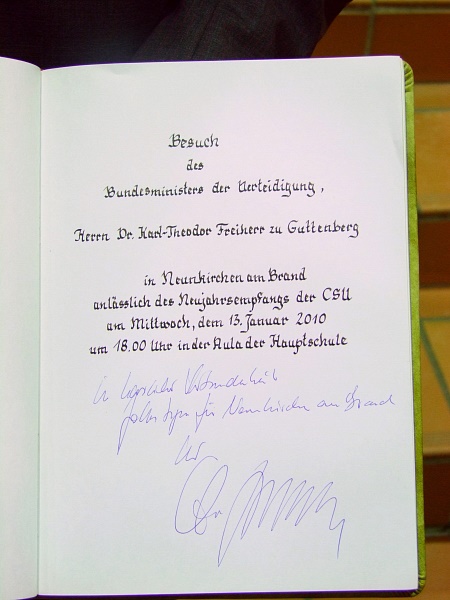 Besuch
des
Bundesministers der Verteidigung,
Herrn Dr. Karl-Theodor Freiherr zu Guttenberg
in Neunkirchen am Brand
anlässlich des Neujahrsempfangs der CSU
am Mittwoch, dem 13. Januar 2010
um 18.00 Uhr in der Aula der Hauptschule
In Verbundenheit
für Neunkirchen am Brand